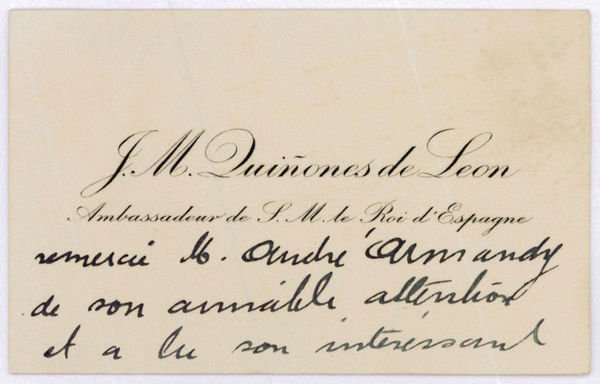 J. M. Quiñones de Leon
Ambassadeur de S. M. le Roi d'Espagne
remercie M. André Armandy
de son aimable attention
et a lu son intéressant